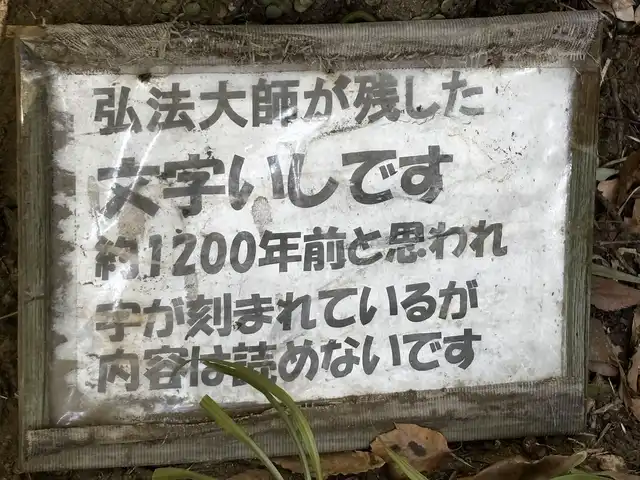 弘法大師が残した
文字いしです
約1200年前と思われ
字が刻まれているが
内容は読めないです